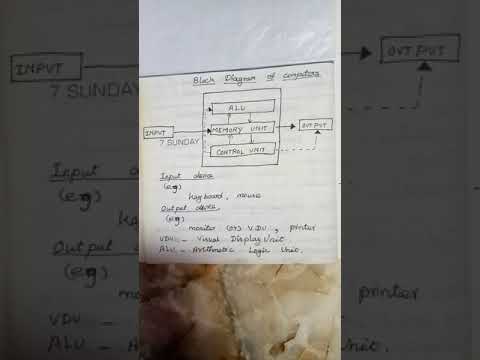 Block Diagram of computers
ALU
INPUT
MEMORY UNIT
OUTPUT
7 SUNDAY
CONTROL UNIT
Input device
(eg)
keyboard, mouse
Output device
(eg)
monitor (or) V.D.U., printer
VDU - Visual Display Unit
ALU - Arithmetic Logic Unit.